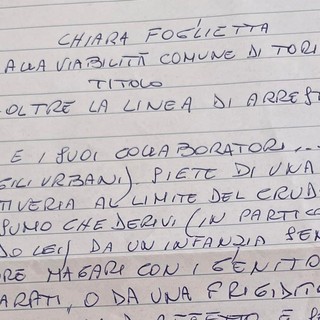 CHIARA FOGLIETTA
ALLA VIABILITÀ COMUNE DI TORI
TITOLO
OLTRE LA LINEA DI ARRES
E I SUOI COLLABORATORI...
ILI URBANI). SIETE DI UNA
TIVERIA AL LIMITE DEL CRUD
SUMO CHE DERIVI (IN PARTICO
DO LEI) DA UN INFANZIA SE
RE MAGARI CON I GENITO
ARATI, O DA UNA FRIGIDIT